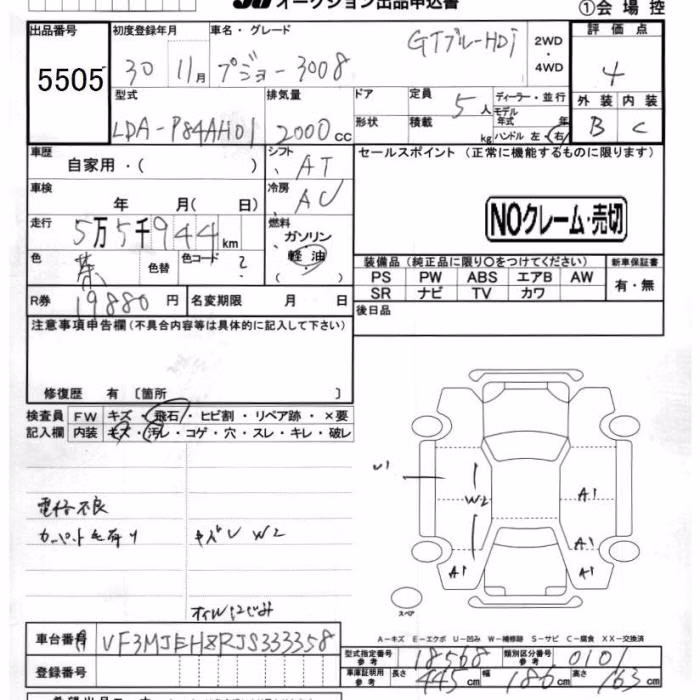 オークション出品申込書
①会場控
出品番号
5505
初度登録年月
30 11月
車名・グレード
プジョー3008 GTブルーHDi
2WD
・
4WD
評価点
4
型式
LDA-P84AH01
排気量
2000cc
ドア
形状
定員 5人
積載 kg
ディーラー・並行
モデル年式 年
ハンドル 左・右
外装 内装
B C
車歴
自家用・(
シフト
AT
セールスポイント (正常に機能するものに限ります)
NOクレーム・売切
車検
年 月( 日)
冷房
AC
走行
5万5千944km
燃料
ガソリン
軽油
( )
色
茶
色替
色コード
?
装備品(純正品に限り○をつけてください)
新車保証書
PS PW ABS エアB AW
SR ナビ TV カワ
有・無
R券
19880円
名変期限 月 日
後日品
注意事項申告欄(不具合内容等は具体的に記入して下さい)
修復歴 有 〔箇所 〕
検査員
記入欄
FW キズ・飛石・ヒビ割・リペア跡・×要
内装 キズ・汚レ・コゲ・穴・スレ・キレ・破レ
電格不良
キズU W2
W2
A1
A1
A1
A1
スペア
A-キズ E-エクボ U-凹み W-補修跡 S-サビ C-腐食 XX-交換済
車台番号
VF3MJEHZRJS333358
登録番号
型式指定番号
参考
18568
類別区分番号
参考
0101
車庫証明用
参考
長さ 445cm
幅 186cm
高さ 163cm